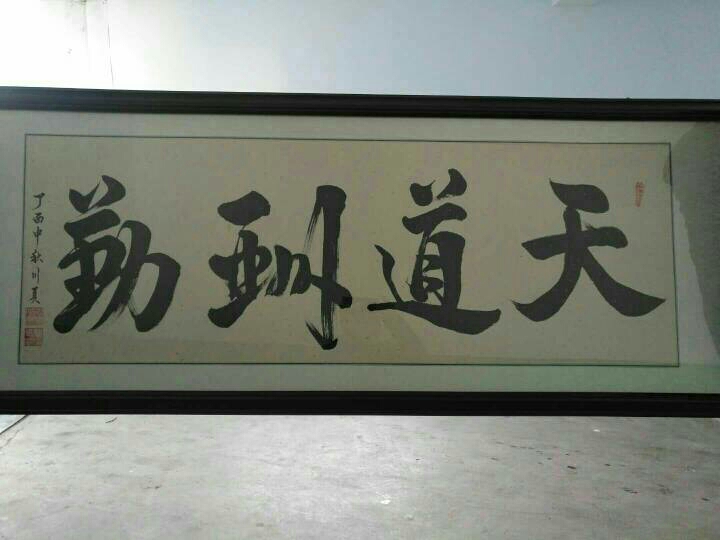 天道酬勤
丁酉中秋川